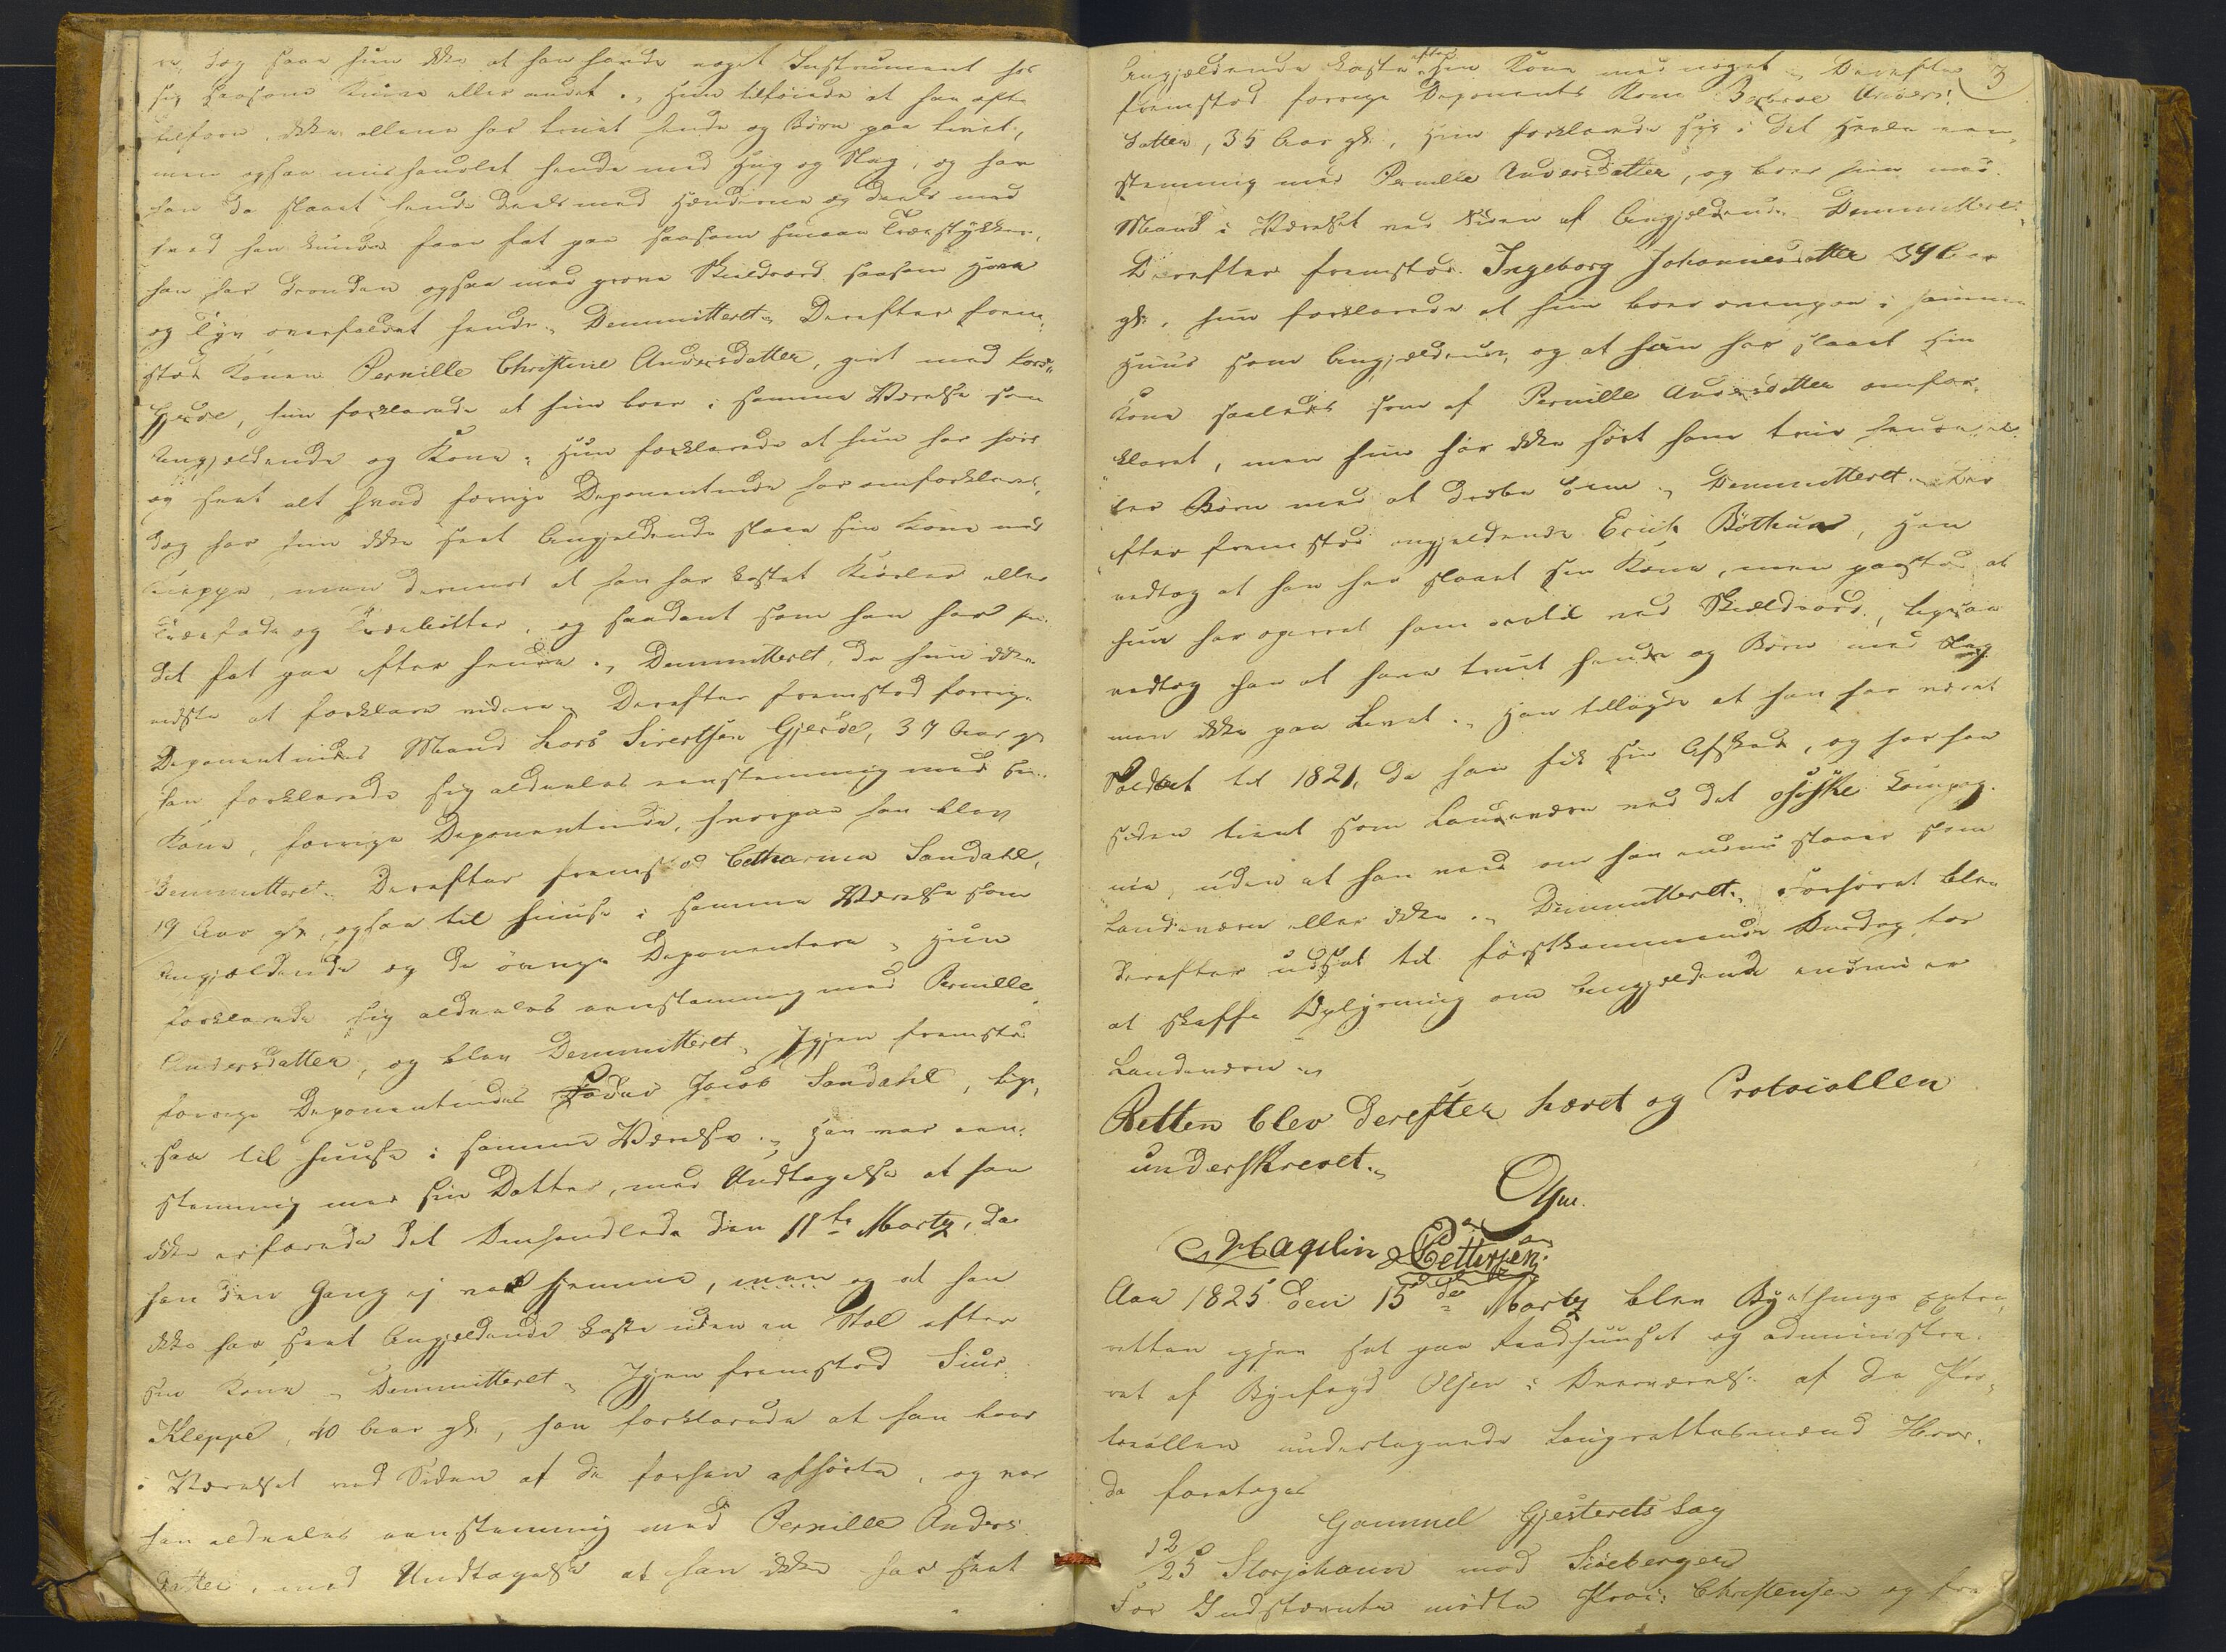 re, dog saae hun ikke at han havde noget Instrument hos
sig saasom Kniv eller andet. Hun tilføiede at han ofte
tilforn ikke allene har truet hende og Børn paa Livet,
men ogsaa mishandlet hende med Hug og Slag, og har
han da slaaet hende deels med Hænderne og deels med
hvad han kunde faae fat paa saasom smaae Træstykker,
han har desuden ogsaa med grove Skieldsord saasom Hore
og Tyv overfaldet hende. Demmitteret. Derefter frem-
stod Konen Pernille Christine Andersdatter, givt med Lars
Gjerde, hun forklarede at hun boer i samme Værelse som
Angjældende og Kone. Hun forklarede at hun har hørt
og seet alt hvad forrige Deponentinde har omforklaret,
dog har hun ikke seet Angjeldende slaae sin Kone med
Kieppe, men derimod at han har kastet Kiørler eller
Træfade og Træbøtter, og saadant som han har fun-
det fat paa efter hende. Demmitteret, da hun ikke
vidste at forklare videre. Derefter fremstod forrige
Deponentindes Mand Lars Sivertsen Gjerde, 37 Aar gl
han forklarede sig aldeeles eenstemmig med sin
Kone, forrige Deponentinde, hvorpaa han blev
Demmitteret. Derefter fremstod Catharina Sandahl,
19 Aar gl, ogsaa til huuse i samme Værelse som
Angjældende og de øvrige Deponentere. Hun
forklarede sig aldeeles eenstemmig med Pernille
Andersdatter, og blev Demmitteret. Igjen fremstod
forrige Deponentindes Fader Jacob Sandahl, lige-
saa til huuse i samme Værelse. Han var een-
stemmig med sin Datter, med Undtagelse at han
ikke erfarede det Omhandlede den 11te Marty, da
han den Gang ej var hjemme, men og at han
ikke har seet Angjældende kaste uden en Stol efter
sin Kone. Demmitteret. Igjen fremstod Siur
Kleppe, 40 Aar gl, han forklarede at han boer
i Værelset ved Siden af de forhen afhørte, og var
han aldeeles eenstemmig med Pernille Anders-
datter, med Undtagelse at han ikke har seet
3
Angjældende kaste efter sin Kone med noget. Derefter
fremstod forrige Deponents Kone Barbroe Anders-
datter, 35 Aar gl, Hun forklarede sig i det Heele een-
stemmig med Pernille Andersdatter, og boer hun med
Mand i Værelset ved Siden af Angjældende. Demmitteret.
Derefter fremstod Ingeborg Johannesdatter 34 Aar
gl, hun forklarede at hun boer ovenpaa i samme
Huus som Angjældende, og at han har slaaet sin
Kone saaledes som af Pernille Andersdatter omfor-
klaret, men hun har ikke hørt ham true hende el-
ler Børn med at dræbe dem. Demmitteret. Der-
efter fremstod angjældende Erich Bøthun, Han
vedtog at han har slaaet sin Kone, men paastod at
hun har opirret ham altid ved Skieldsord, ligesaa
vedtog han at have truet hende og Børn med Slag
men ikke paa Livet. Han tillagde at han har været
Soldat til 1821, da han fik sin Afsked, og har han
siden tient som Landeværn ved det osiske Compag-
nie, uden at han veed om han endnu staaer som
Landeværn eller ikke. Demmitteret. Forhøret blev
derefter udsat til førstkommende Onsdag for
at skaffe Oplysning om Angjældende endnu er
Landeværn.
Retten blev derefter hævet og Protocollen
underskrevet.
Olsen.
Maqelin Pettersen.
Aar 1825 den 15de Marty blev Byethings extra
retten igjen sat paa Raadhuuset og administre-
ret af Byefogd Olsen i Overværelse af de Pro-
tocollen undertegnede Laugrettesmænd Hvor-
da foretoges
Gammel Gjesterets Sag
12/25 Storjohann mod Siøebergen
For Indstævnte mødte Proc: Christensen og fre